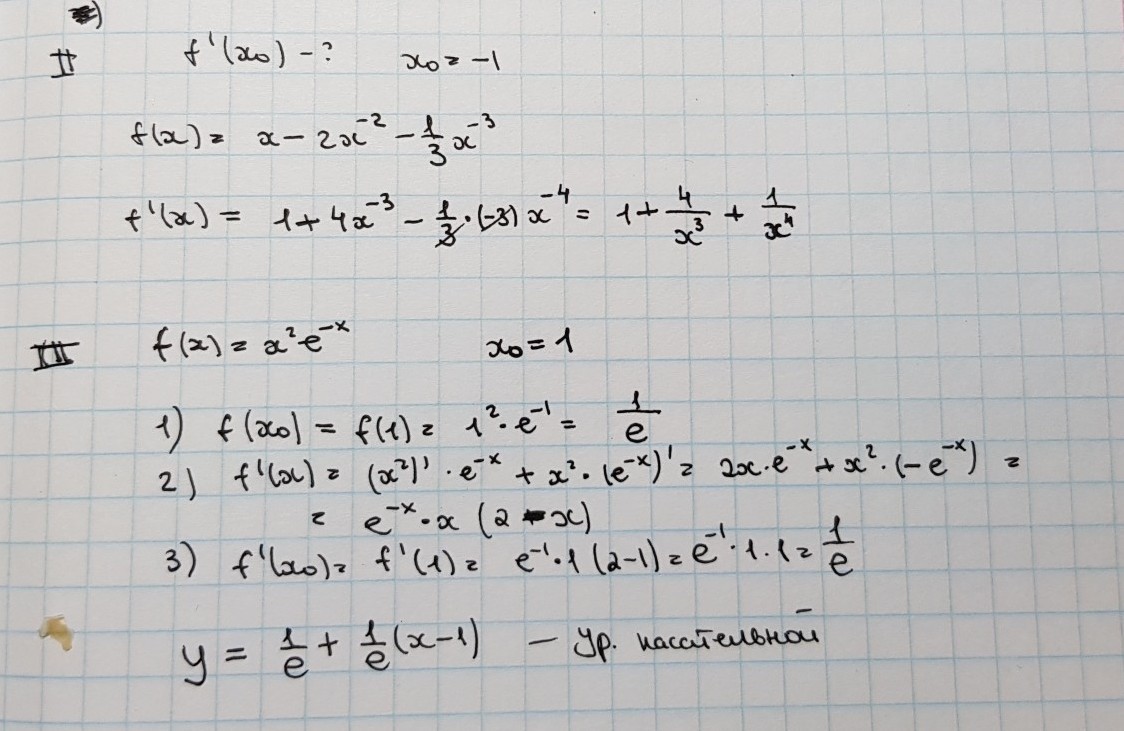 II f'(x₀) - ? x₀ = -1
f(x) = x - 2x⁻² - 1/3 x⁻³
f'(x) = 1 + 4x⁻³ - 1/3 · (-3) x⁻⁴ = 1 + 4/x³ + 1/x⁴
III f(x) = x² e⁻ˣ x₀ = 1
1) f(x₀) = f(1) = 1² · e⁻¹ = 1/e
2) f'(x) = (x²)' · e⁻ˣ + x² · (e⁻ˣ)' = 2x · e⁻ˣ + x² · (-e⁻ˣ) =
= e⁻ˣ · x (2 - x)
3) f'(x₀) = f'(1) = e⁻¹ · 1 (2-1) = e⁻¹ · 1 · 1 = 1/e
y = 1/e + 1/e (x-1) - ур. касательной